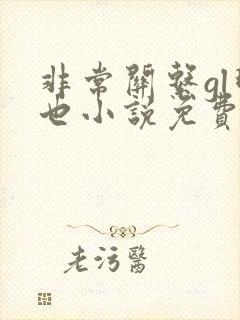 非常關繫gl
也小說免費
老污醫